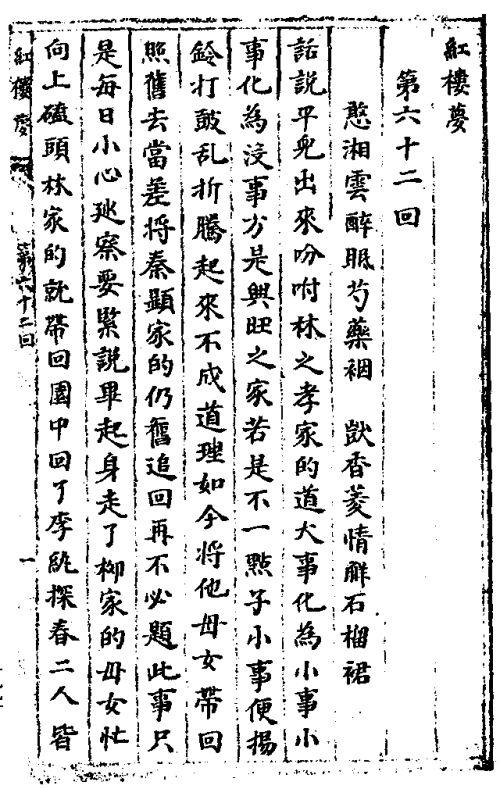 紅樓夢
第六十二回
憨湘雲醉眠芍藥裀 獃香菱情解石榴裙
話說平兒出來吩咐林之孝家的道大事化為小事小
事化為沒事方是興旺之家若是不一點子小事便揚
鈴打鼓乱折騰起來不成道理如今將他母女帶回
照舊去當差將秦顯家的仍舊追回再不必題此事只
是每日小心廵察要緊說畢起身走了柳家的母女忙
向上磕頭林家的就帶回園中回了李紈探春二人皆
紅樓夢 第六十二回 一